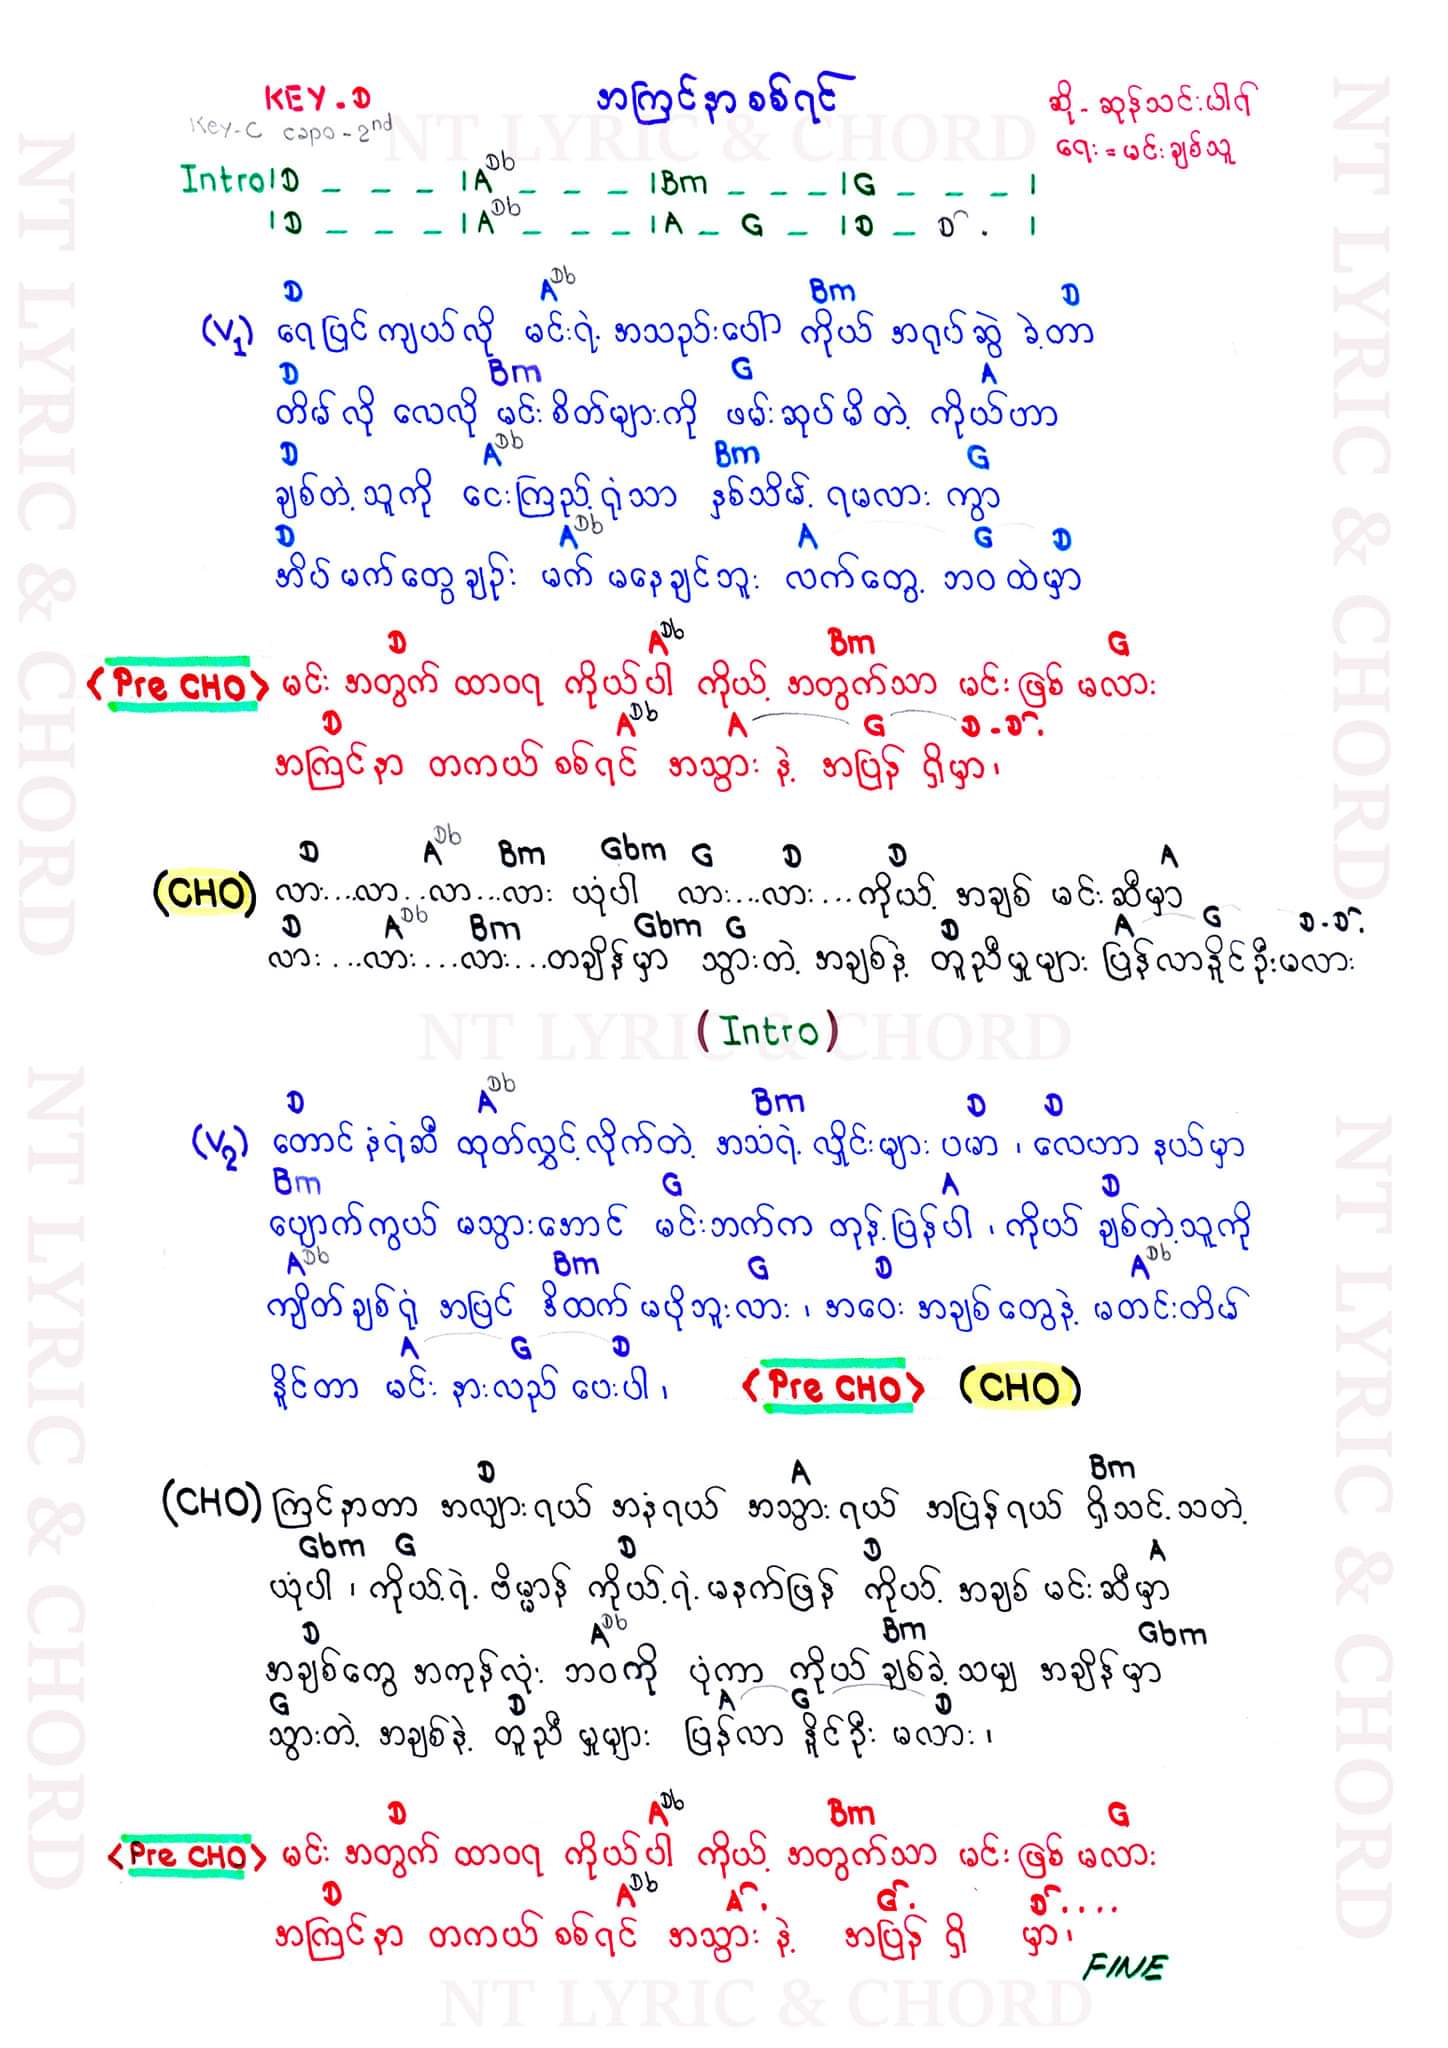 KEY-D
အကြင်နာစစ်ရင်
ဆို - ဆုန်သင်းပါရ်
Key-C capo-2nd
ရေး = မင်းချစ်သူ
Intro |D _ _ _ |A Db _ _ _ |Bm _ _ _ |G _ _ _ |
|D _ _ _ |A Db _ _ _ |A _ G _ |D _ D . |
D A Db Bm D
(V1) ရေပြင်ကျယ်လို မင်းရဲ့ အသည်းပေါ် ကိုယ် အရုပ်ဆွဲ ခဲ့တာ
D Bm G A
တိမ်လို လေလို မင်းစိတ်များကို ဖမ်းဆုပ်မိတဲ့ ကိုယ်ဟာ
D A Db Bm G
ချစ်တဲ့သူကို ငေးကြည့်ရုံသာ နှစ်သိမ့် ရမလား ကွာ
D A Db A G D
အိပ်မက်တွေချည်း မက် မနေချင်ဘူး လက်တွေ့ ဘဝထဲမှာ
D A Db Bm G
<Pre CHO> မင်း အတွက် ထာဝရ ကိုယ်ပါ ကိုယ့် အတွက်သာ မင်းဖြစ် မလား
D A Db A G D-D.
အကြင်နာ တကယ်စစ်ရင် အသွား နဲ့ အပြန် ရှိမှာ၊
D A Db Bm Gbm G D D A
(CHO) လား...လာ..လာ...လား ယုံပါ လား...လား....ကိုယ့် အချစ် မင်းဆီမှာ
D A Db Bm Gbm G D A G D-D.
လား...လား....လား...တချိန်မှာ သွားတဲ့ အချစ်နဲ့ တူညီမှုများ ပြန်လာနိုင်ဦးမလား
(Intro)
D A Db Bm D D
(V2) တောင်နံရံဆီ ထုတ်လွှင့်လိုက်တဲ့ အသံရဲ့ လှိုင်းများ ပမာ ၊ လေဟာ နယ်မှာ
Bm G A D
ပျောက်ကွယ် မသွားအောင် မင်းဘက်က တုန့်ပြန်ပါ ၊ ကိုယ် ချစ်တဲ့သူကို
A Db Bm G D A Db
ကျိတ်ချစ်ရုံ အပြင် ဒီထက် မပိုဘူးလား ၊ အဝေး အချစ်တွေနဲ့ မတင်းတိမ်
A G D
နိုင်တာ မင်း နားလည် ပေးပါ ၊ <Pre CHO> (CHO)
D A Bm
(CHO) ကြင်နာတာ အလျားရယ် အနံရယ် အသွားရယ် အပြန်ရယ် ရှိသင့်သတဲ့
Gbm G D D A
ယုံပါ ၊ ကိုယ့်ရဲ့ ဗိမ္မာန် ကိုယ့်ရဲ့ မနက်ဖြန် ကိုယ့် အချစ် မင်းဆီမှာ
D A Db Bm Gbm
အချစ်တွေ အကုန်လုံး ဘဝကို ပုံကာ ကိုယ် ချစ်ခဲ့သမျှ အချိန်မှာ
G D A G D
သွားတဲ့ အချစ်နဲ့ တူညီ မှုများ ပြန်လာ နိုင်ဦး မလား ၊
D A Db Bm G
<Pre CHO> မင်း အတွက် ထာဝရ ကိုယ်ပါ ကိုယ့် အတွက်သာ မင်းဖြစ် မလား
D A Db A. G. D....
အကြင်နာ တကယ်စစ်ရင် အသွား နဲ့ အပြန် ရှိ မှာ၊
FINE
NT LYRIC & CHORD
NT LYRIC & CHORD
NT LYRIC & CHORD
NT LYRIC & CHORD
NT LYRIC & CHORD
NT LYRIC & CHORD
NT LYRIC & CHORD